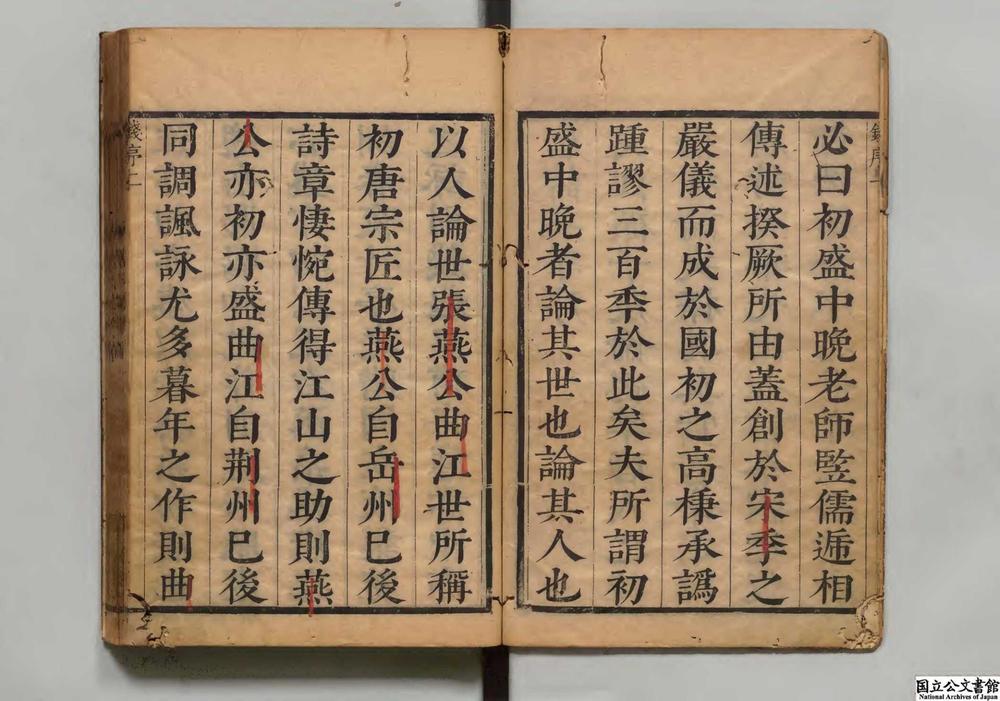 必曰初盛中晚老師豎儒遞相
傳述揆厥所由蓋創於宋季之
嚴儀而成於國初之高棅承譌
踵謬三百秊於此矣夫所謂初
盛中晚者論其世也論其人也
以人論世張燕公曲江世所稱
初唐宗匠也燕公自岳州已後
詩章悽惋傳得江山之助則燕
公亦初亦盛曲江自荆州已後
同調諷詠尤多暮年之作則曲
錢序二
国立公文書館
National Archives of Japan